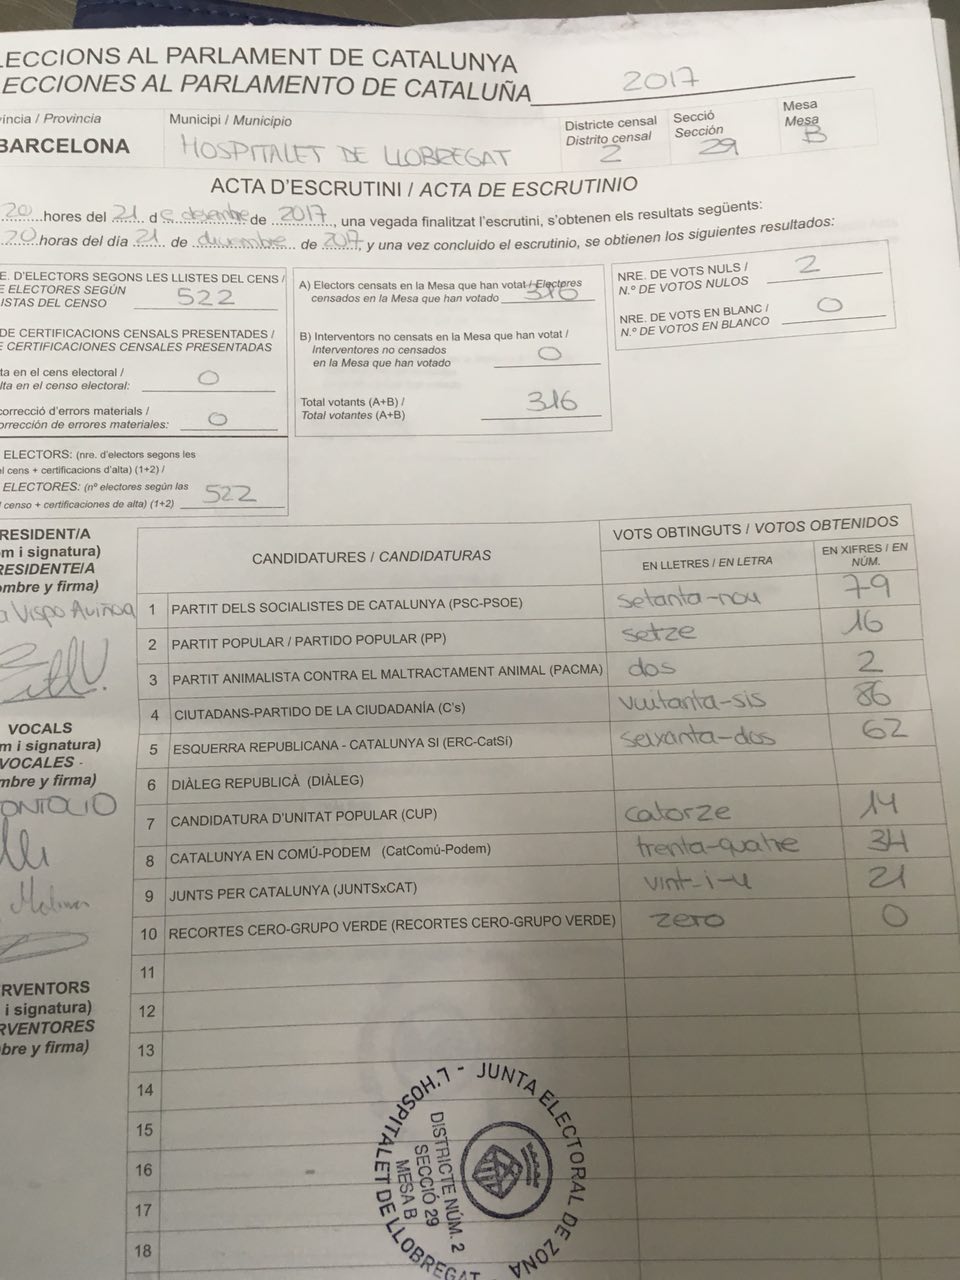 LECCIONS AL PARLAMENT DE CATALUNYA
LECCIONES AL PARLAMENTO DE CATALUÑA 2017
víncia / Provincia
BARCELONA
Municipi / Municipio
HOSPITALET DE LLOBREGAT
Districte censal
Distrito censal
2
Secció
Sección
29
Mesa
Mesa
B
ACTA D'ESCRUTINI / ACTA DE ESCRUTINIO
20 hores del 21 de desembre de 2017, una vegada finalitzat l'escrutini, s'obtenen els resultats següents:
20 horas del día 21 de diciembre de 2017, y una vez concluido el escrutinio, se obtienen los siguientes resultados:
E. D'ELECTORS SEGONS LES LLISTES DEL CENS /
E ELECTORES SEGÚN
ISTAS DEL CENSO 522
DE CERTIFICACIONS CENSALS PRESENTADES /
E CERTIFICACIONES CENSALES PRESENTADAS
ta en el cens electoral /
lta en el censo electoral: 0
correcció d'errors materials /
orrección de errores materiales: 0
ELECTORS: (nre. d'electors segons les
el cens + certificacions d'alta) (1+2) /
ELECTORES: (nº electores según las
censo + certificaciones de alta) (1+2) 522
A) Electors censats en la Mesa que han votat / Electores
censados en la Mesa que han votado 316
B) Interventors no censats en la Mesa que han votat /
Interventores no censados
en la Mesa que han votado 0
Total votants (A+B) /
Total votantes (A+B) 316
NRE. DE VOTS NULS /
N.º DE VOTOS NULOS 2
NRE. DE VOTS EN BLANC /
N.º DE VOTOS EN BLANCO 0
CANDIDATURES / CANDIDATURAS
VOTS OBTINGUTS / VOTOS OBTENIDOS
EN LLETRES / EN LETRA
EN XIFRES / EN
NÚM.
1 PARTIT DELS SOCIALISTES DE CATALUNYA (PSC-PSOE) setanta-nou 79
2 PARTIT POPULAR / PARTIDO POPULAR (PP) setze 16
3 PARTIT ANIMALISTA CONTRA EL MALTRACTAMENT ANIMAL (PACMA) dos 2
4 CIUTADANS-PARTIDO DE LA CIUDADANÍA (C's) vuitanta-sis 86
5 ESQUERRA REPUBLICANA - CATALUNYA SI (ERC-CatSí) seixanta-dos 62
6 DIÀLEG REPUBLICÀ (DIÀLEG)
7 CANDIDATURA D'UNITAT POPULAR (CUP) catorze 14
8 CATALUNYA EN COMÚ-PODEM (CatComú-Podem) trenta-quatre 34
9 JUNTS PER CATALUNYA (JUNTSxCAT) vint-i-u 21
10 RECORTES CERO-GRUPO VERDE (RECORTES CERO-GRUPO VERDE) zero 0
11
12
13
14
15
16
17
18
RESIDENT/A
m i signatura)
RESIDENTE/A
ombre y firma)
a Vispo Auiñoa
VOCALS
m i signatura)
VOCALES -
mbre y firma)
Molina
RVENTORS
i signatura)
RVENTORES
bre y firma)
JUNTA ELECTORAL DE ZONA
L'HOSPITALET DE LLOBREGAT
DISTRICTE NÚM. 2
SECCIÓ 29
MESA B